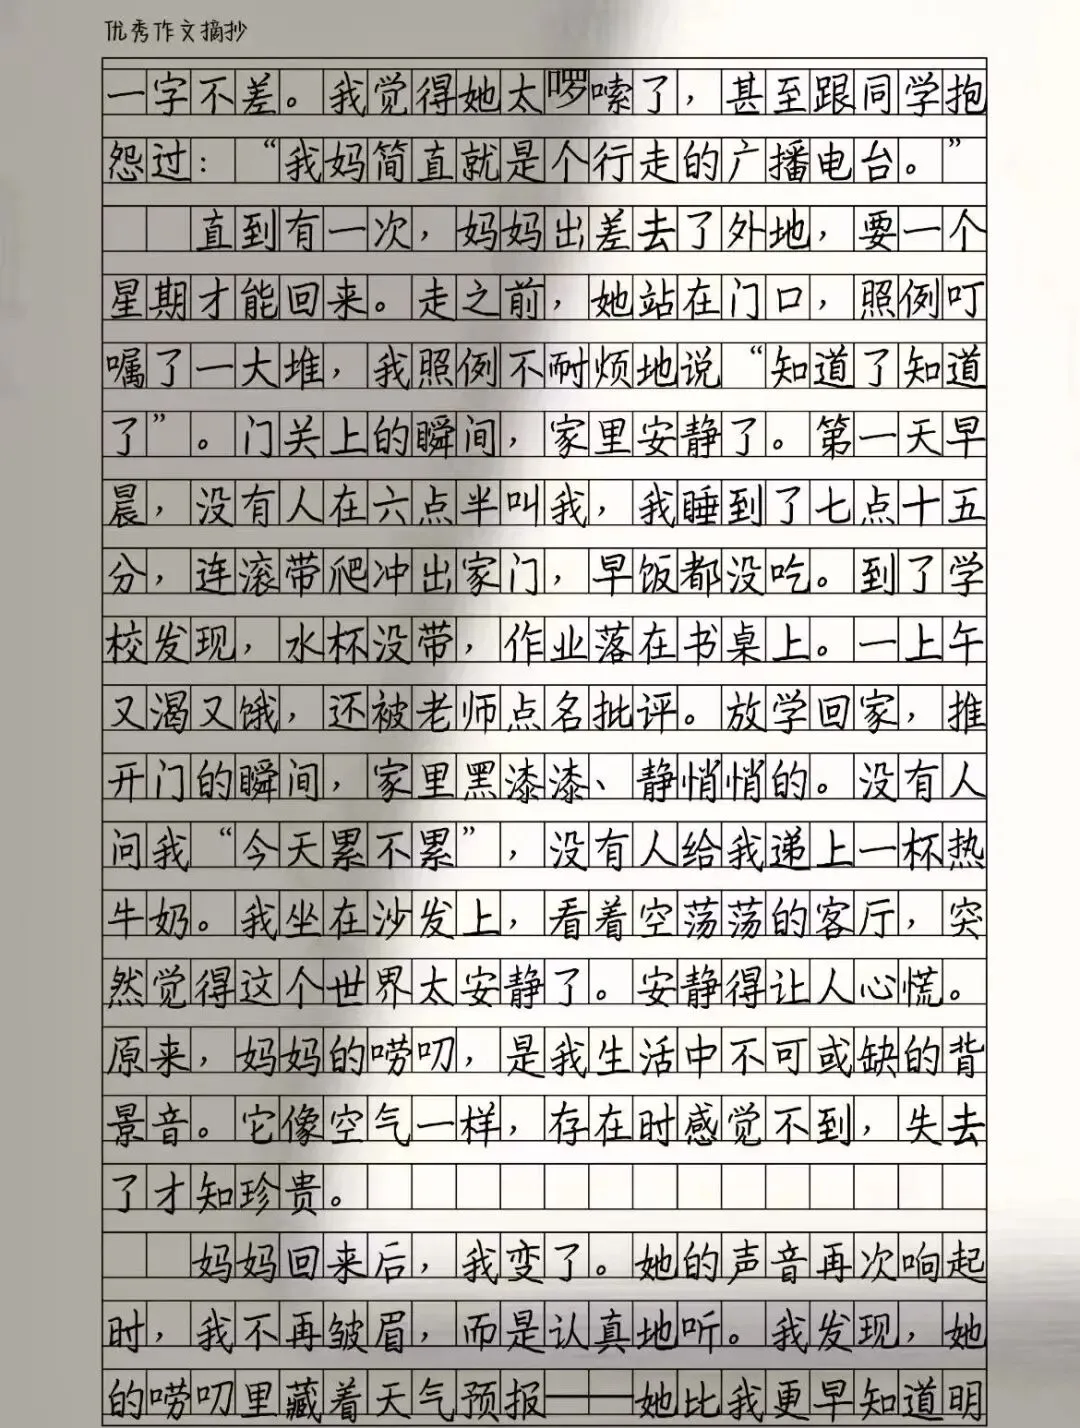 优秀作文摘抄
一字不差。我觉得她太啰嗦了，甚至跟同学抱
怨过：“我妈简直就是个行走的广播电台。”
直到有一次，妈妈出差去了外地，要一个
星期才能回来。走之前，她站在门口，照例叮
嘱了一大堆，我照例不耐烦地说“知道了知道
了”。门关上的瞬间，家里安静了。第一天早
晨，没有人在六点半叫我，我睡到了七点十五
分，连滚带爬冲出家门，早饭都没吃。到了学
校发现，水杯没带，作业落在书桌上。一上午
又渴又饿，还被老师点名批评。放学回家，推
开门的瞬间，家里黑漆漆、静悄悄的。没有人
问我“今天累不累”，没有人给我递上一杯热
牛奶。我坐在沙发上，看着空荡荡的客厅，突
然觉得这个世界太安静了。安静得让人心慌。
原来，妈妈的唠叨，是我生活中不可或缺的背
景音。它像空气一样，存在时感觉不到，失去
了才知珍贵。
妈妈回来后，我变了。她的声音再次响起
时，我不再皱眉，而是认真地听。我发现，她
的唠叨里藏着天气预报——她比我更早知道明